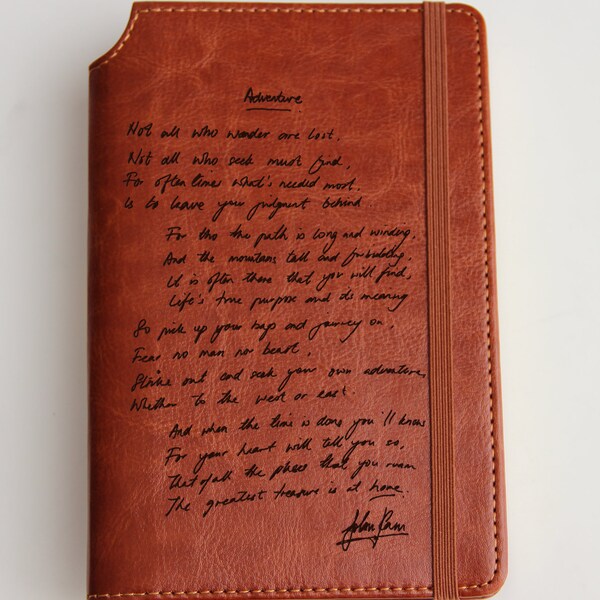 Adventure
Not all who wander are lost.
Not all who seek must find,
For often times what's needed most.
Is to leave your judgment behind
For tho the path is long and winding,
And the mountains tall and forbidding,
It is often there that you will find,
Life's true purpose and its meaning
So pick up your bags and journey on,
Fear no man nor beast,
Strike out and seek your own adventure,
Whether to the west or east.
And when the time is done you'll know
For your heart will tell you so,
That of all the places that you roam
The greatest treasure is at home.